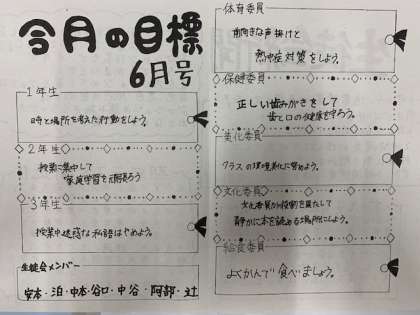 今月の目標
6月号
1年生
時と場所を考えた行動をしよう。
2年生
授業に集中して
家庭学習を頑張ろう
3年生
授業中迷惑な私語はやめよう。
生徒会メンバー
安本・泊・中本・谷口・中谷・阿部・辻
体育委員
前向きな声掛けと
熱中症対策をしよう。
保健委員
正しい歯みがきをして
歯と口の健康を守ろう。
美化委員
クラスの環境美化に努めよう。
文化委員
文化委員が役割を果たして
静かに本を読める場所にしよう。
給食委員
よくかんで食べましょう。